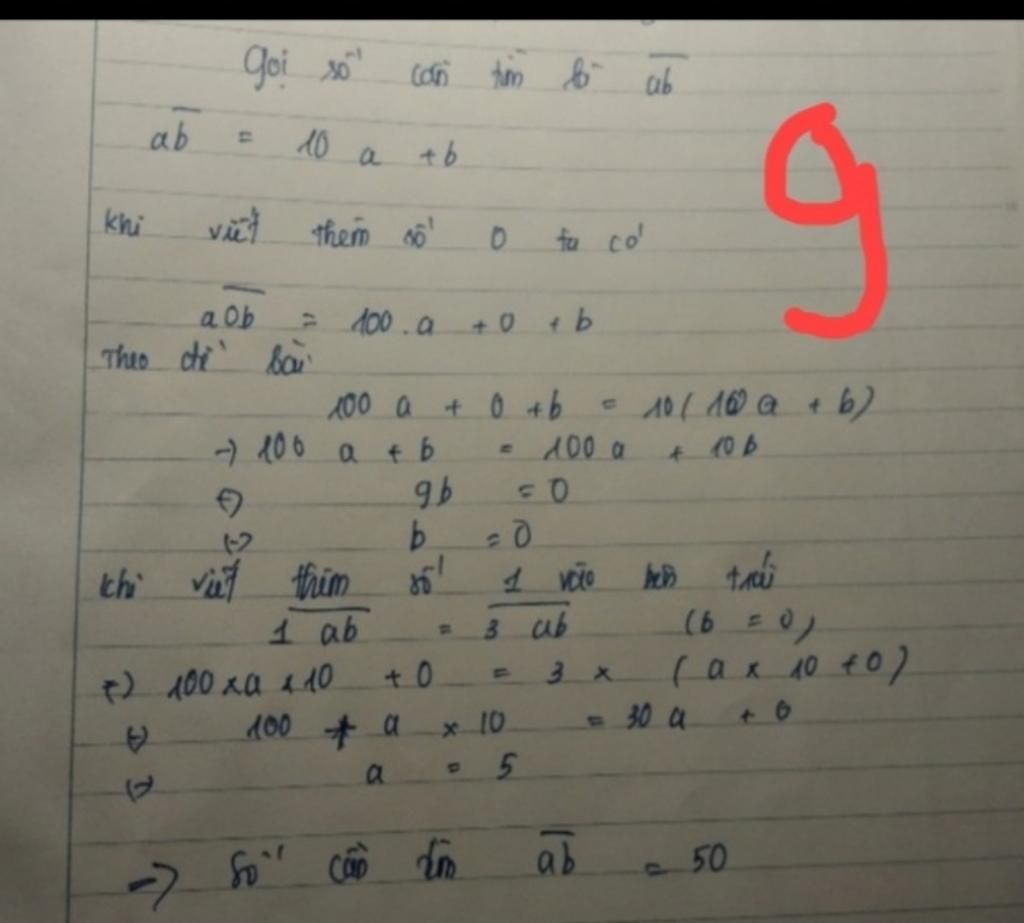 Gọi số cần tìm là ab
ab = 10 a + b
9
khi viết thêm số 0 ta có
a0b = 100.a + 0 + b
Theo đề bài
100 a + 0 + b = 10(10 a + b)
-) 100 a + b = 100 a + 10b
(-) 9b = 0
(-) b = 0
khi viết thêm số 1 vào bên trái
1 ab = 3 ab (b = 0)
(-) 100 x a x 10 + 0 = 3 x (a x 10 + 0)
(-) 100 + a x 10 = 30 a + 0
(-) a = 5
-> Số cần tìm ab = 50